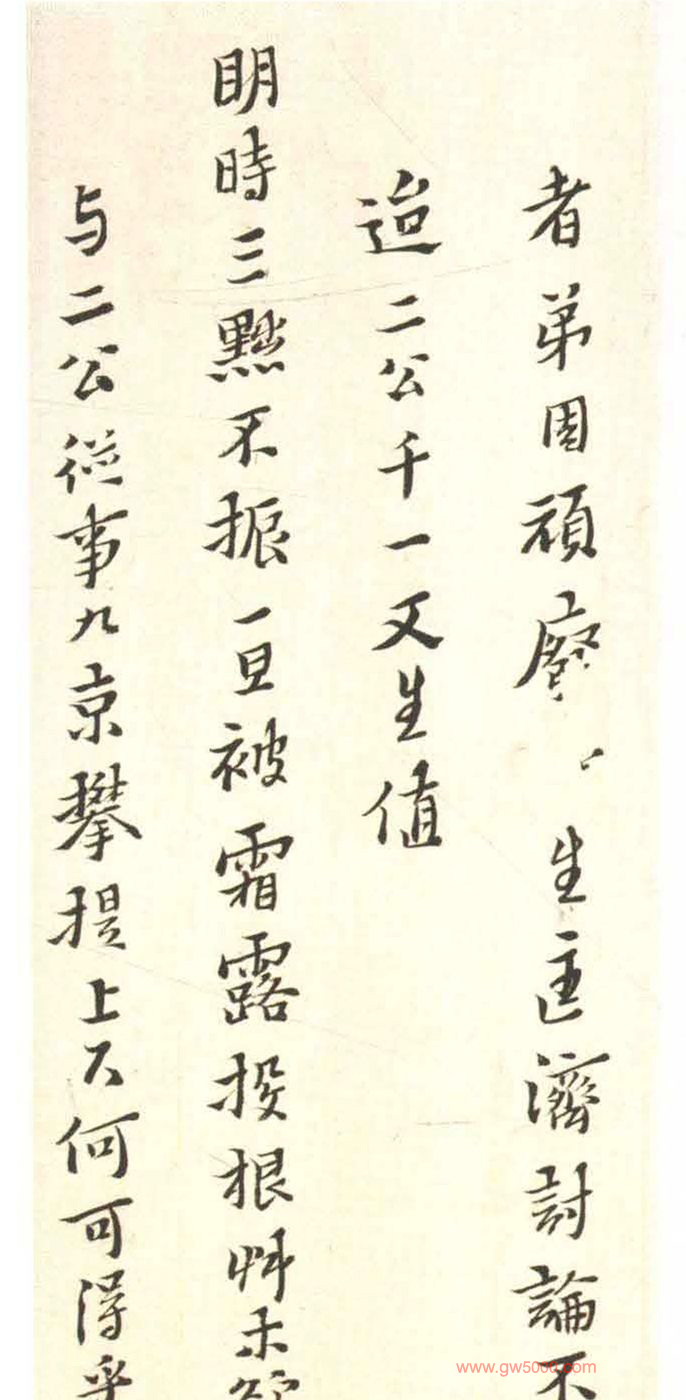 者弟固頑廢生匡濟討論不
迨二公千一又生值
明時三黜不振一旦被霜露投根草木
与二公從事九京攀提上下何可得乎
www.gw5000.com